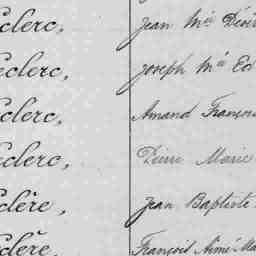 clerc, Jean Mie Désiré
eclerc, Joseph Mie Ed
clerc, Amand François
eclerc, Pierre Marie
clère, Jean Baptiste
clère, François Aimé Ma